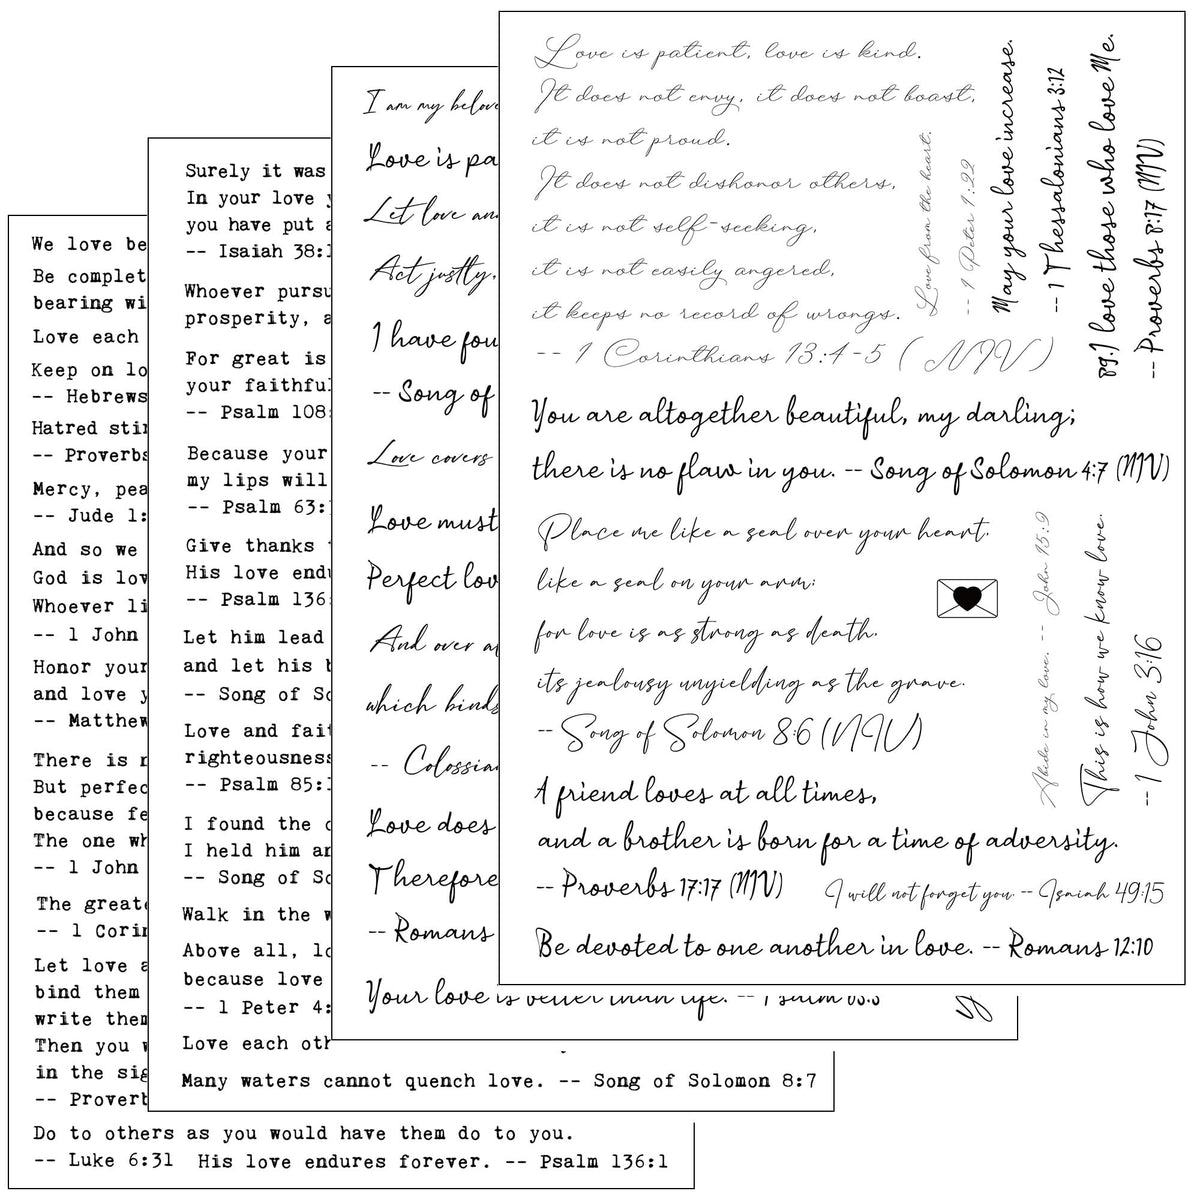 We love be
Be complet
bearing wi
Love each
Keep on lo
-- Hebrews
Hatred stir
-- Proverbs
Mercy, pea
-- Jude 1:
And so we
God is lov
Whoever li
-- 1 John
Honor your
and love y
-- Matthew
There is n
But perfec
because fe
The one wh
-- 1 John
The greate
-- 1 Corin
Let love a
bind them
write them
Then you w
in the sig
-- Proverb
Do to others as you would have them do to you.
-- Luke 6:31 His love endures forever. -- Psalm 136:1
Surely it was
In your love y
you have put a
-- Isaiah 38:1
Whoever pursu
prosperity, a
For great is
your faithful
-- Psalm 108:
Because your
my lips will
-- Psalm 63:
Give thanks t
His love endu
-- Psalm 136:
Let him lead
and let his b
-- Song of So
Love and fait
righteousness
-- Psalm 85:1
I found the o
I held him an
-- Song of So
Walk in the w
Above all, lo
because love
-- 1 Peter 4:
Love each oth
Many waters cannot quench love. -- Song of Solomon 8:7
I am my belove
Love is pa
Let love an
Act justly,
I have fou
-- Song of
Love covers
Love must
Perfect lov
And over a
which binds
-- Colossian
Love does
Therefore
-- Romans
Your love is better than life. -- Psalm 63:3
Love is patient, love is kind.
It does not envy, it does not boast,
it is not proud.
It does not dishonor others,
it is not self-seeking,
it is not easily angered,
it keeps no record of wrongs.
-- 1 Corinthians 13:4-5 (NIV)
Love from the heart.
-- 1 Peter 1:22
May your love increase.
-- 1 Thessalonians 3:12
89.I love those who love Me.
-- Proverbs 8:17 (NIV)
You are altogether beautiful, my darling;
there is no flaw in you. -- Song of Solomon 4:7 (NIV)
Place me like a seal over your heart.
like a seal on your arm:
for love is as strong as death.
its jealousy unyielding as the grave.
-- Song of Solomon 8:6 (NIV)
Abide in my love. -- John 15:9
This is how we know love.
-- 1 John 3:16
A friend loves at all times,
and a brother is born for a time of adversity.
-- Proverbs 17:17 (NIV)
I will not forget you -- Isaiah 49:15
Be devoted to one another in love. -- Romans 12:10